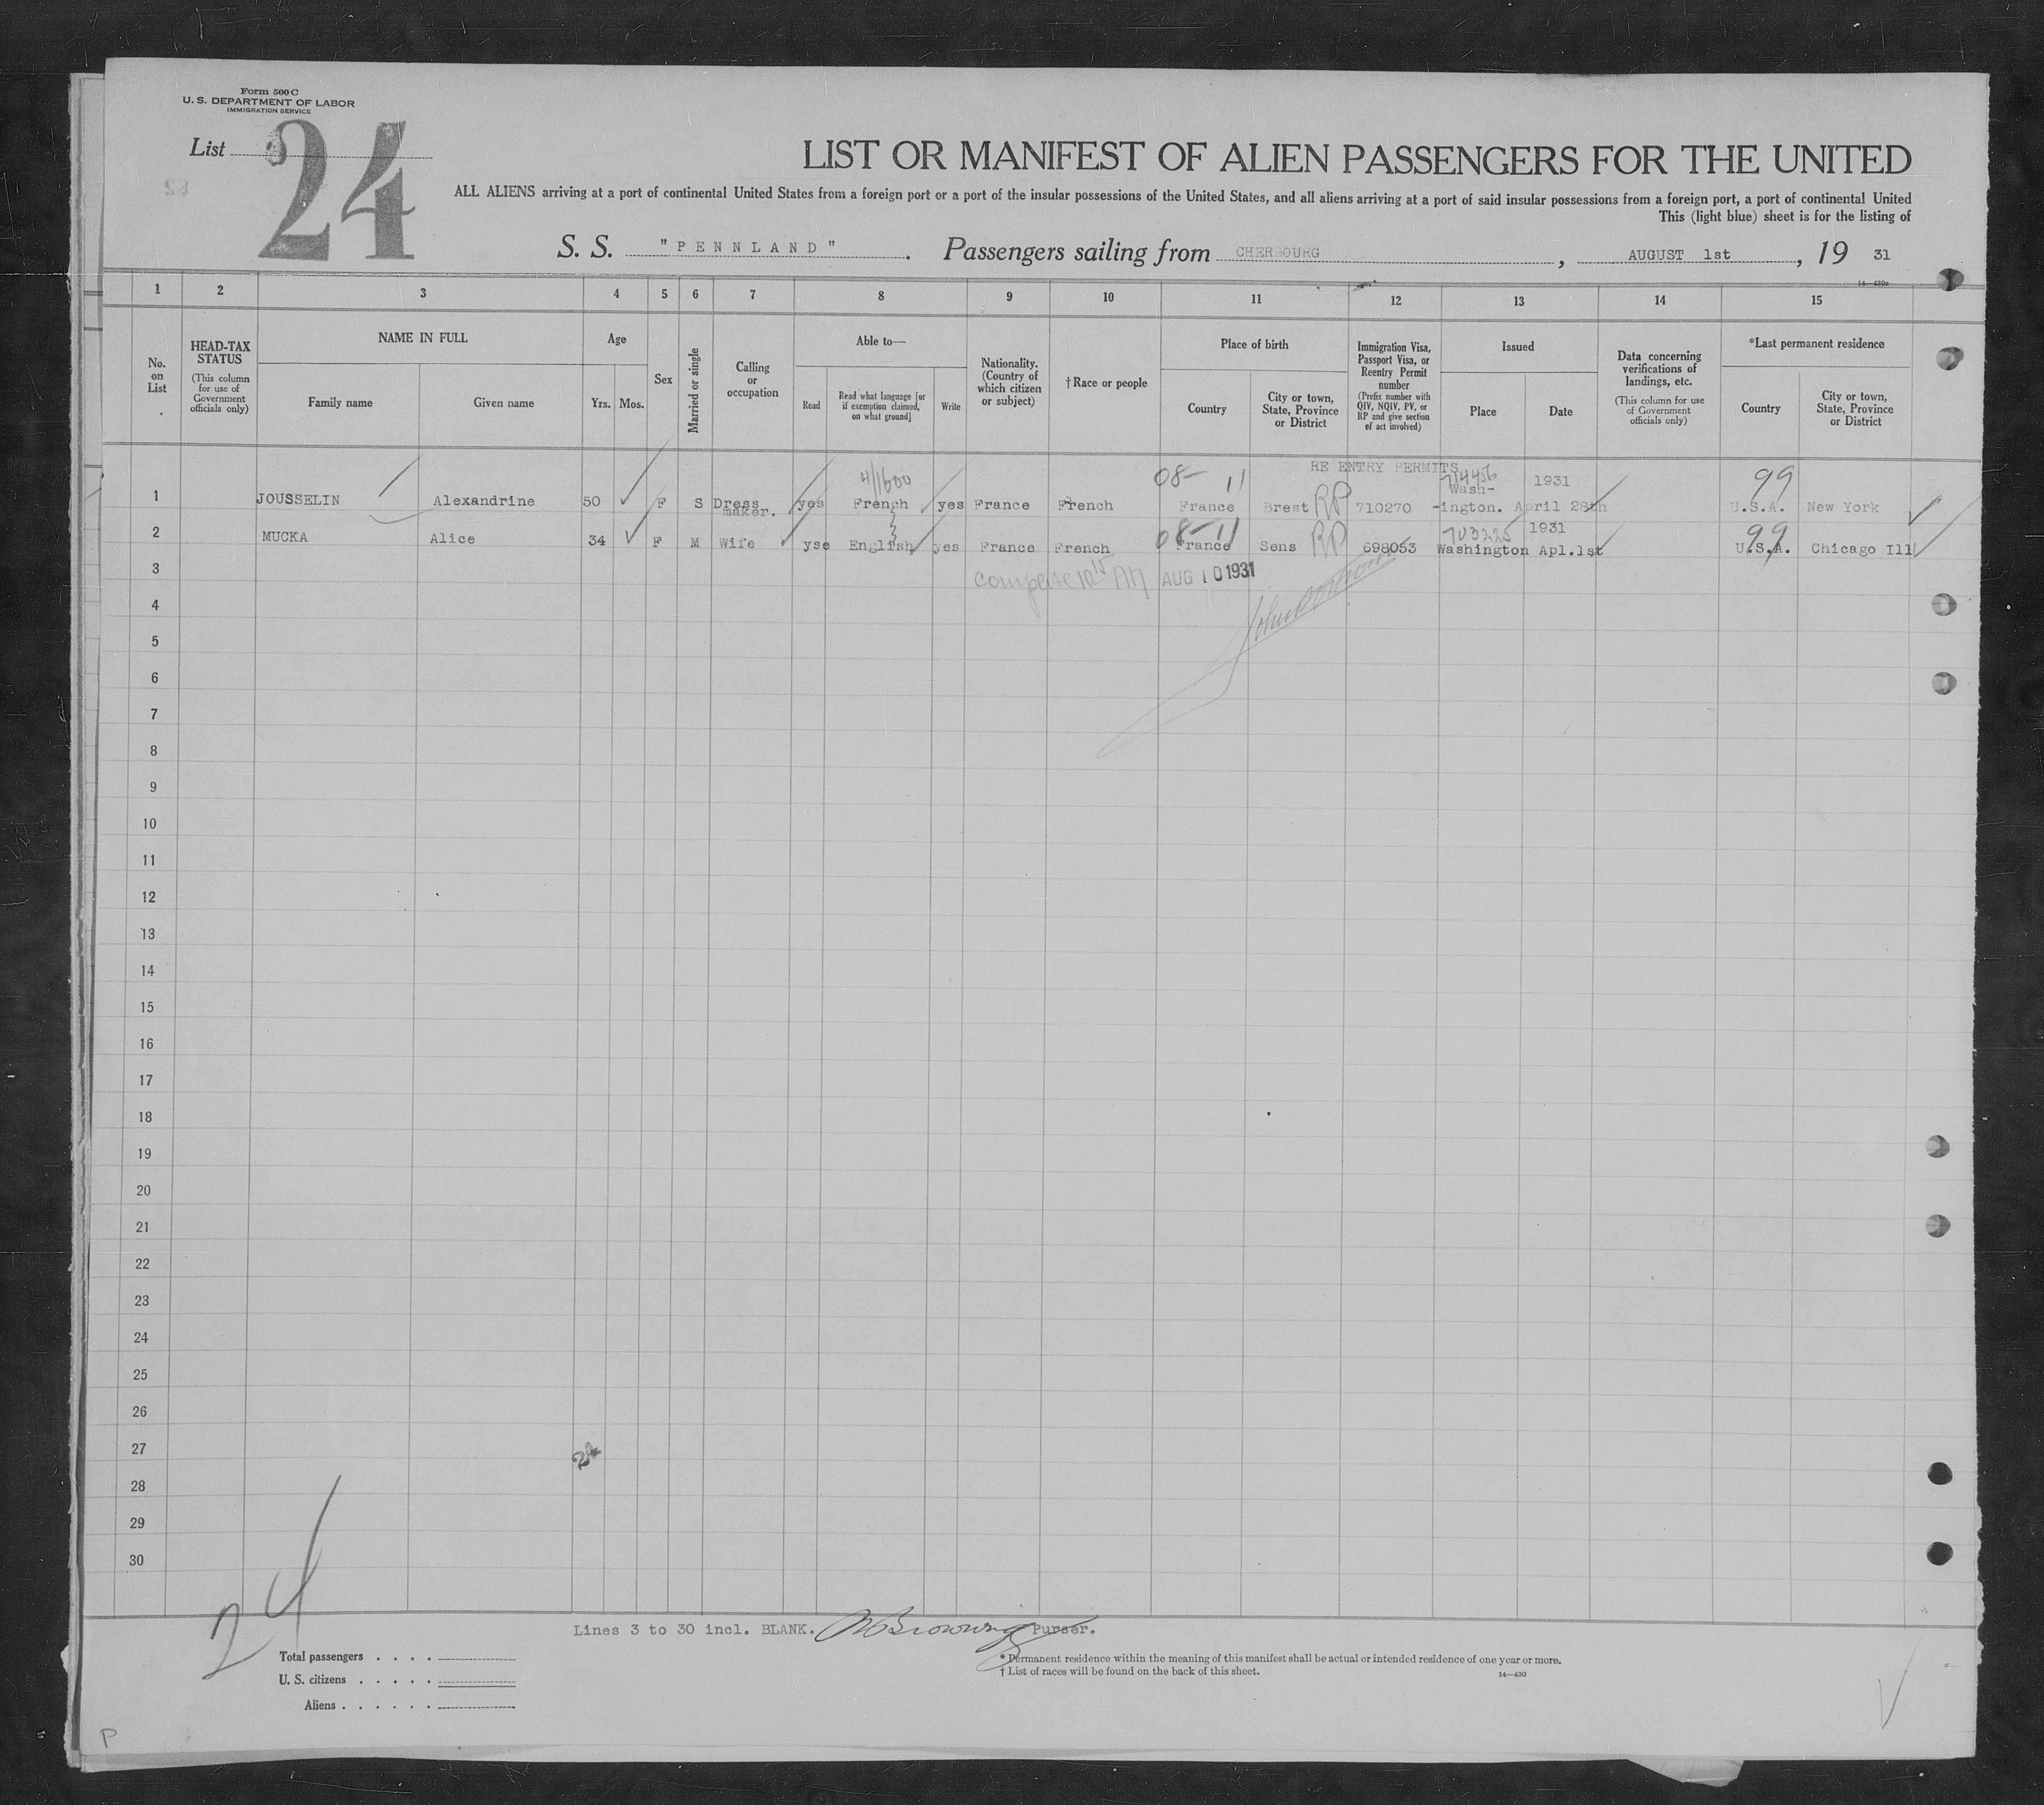 Form 500 C
U. S. DEPARTMENT OF LABOR
IMMIGRATION SERVICE
List 24
LIST OR MANIFEST OF ALIEN PASSENGERS FOR THE UNITED
ALL ALIENS arriving at a port of continental United States from a foreign port or a port of the insular possessions of the United States, and all aliens arriving at a port of said insular possessions from a foreign port, a port of continental United
This (light blue) sheet is for the listing of
S. S. "PENNLAND". Passengers sailing from CHERBOURG, AUGUST 1st, 19 31
14—430a
1 2 3 4 5 6 7 8 9 10 11 12 13 14 15
No. on List
HEAD-TAX STATUS
(This column for use of Government officials only)
NAME IN FULL
Family name
Given name
Age
Yrs. Mos.
Sex
Married or single
Calling or occupation
Able to—
Read
Read what language [or if exemption claimed, on what ground]
Write
Nationality. (Country of which citizen or subject)
†Race or people
Place of birth
Country
City or town, State, Province or District
Immigration Visa, Passport Visa, or Reentry Permit number
(Prefix number with QIV, NQIV, PV, or RP and give section of act involved)
Issued
Place
Date
Data concerning verifications of landings, etc.
(This column for use of Government officials only)
*Last permanent residence
Country
City or town, State, Province or District
4/1600 08- 11 RE ENTRY PERMITS 714456 1931 99
1 JOUSSELIN Alexandrine 50 F S Dress maker. yes French yes France French France Brest RP 710270 Wash- -ington. April 28th U.S.A. New York
08-11 703225 1931 99
2 MUCKA Alice 34 F M Wife yse English yes France French France Sens RP 698053 Washington Apl.1st U.S.A. Chicago Ill
3 AUG 10 1931
4
5
6
7
8
9
10
11
12
13
14
15
16
17
18
19
20
21
22
23
24
25
26
27 24
28
29
30
24
Lines 3 to 30 incl. BLANK. Browning Purser.
Total passengers . . . .
U. S. citizens . . . . .
Aliens . . . . . .
* Permanent residence within the meaning of this manifest shall be actual or intended residence of one year or more.
† List of races will be found on the back of this sheet.
14—430
P